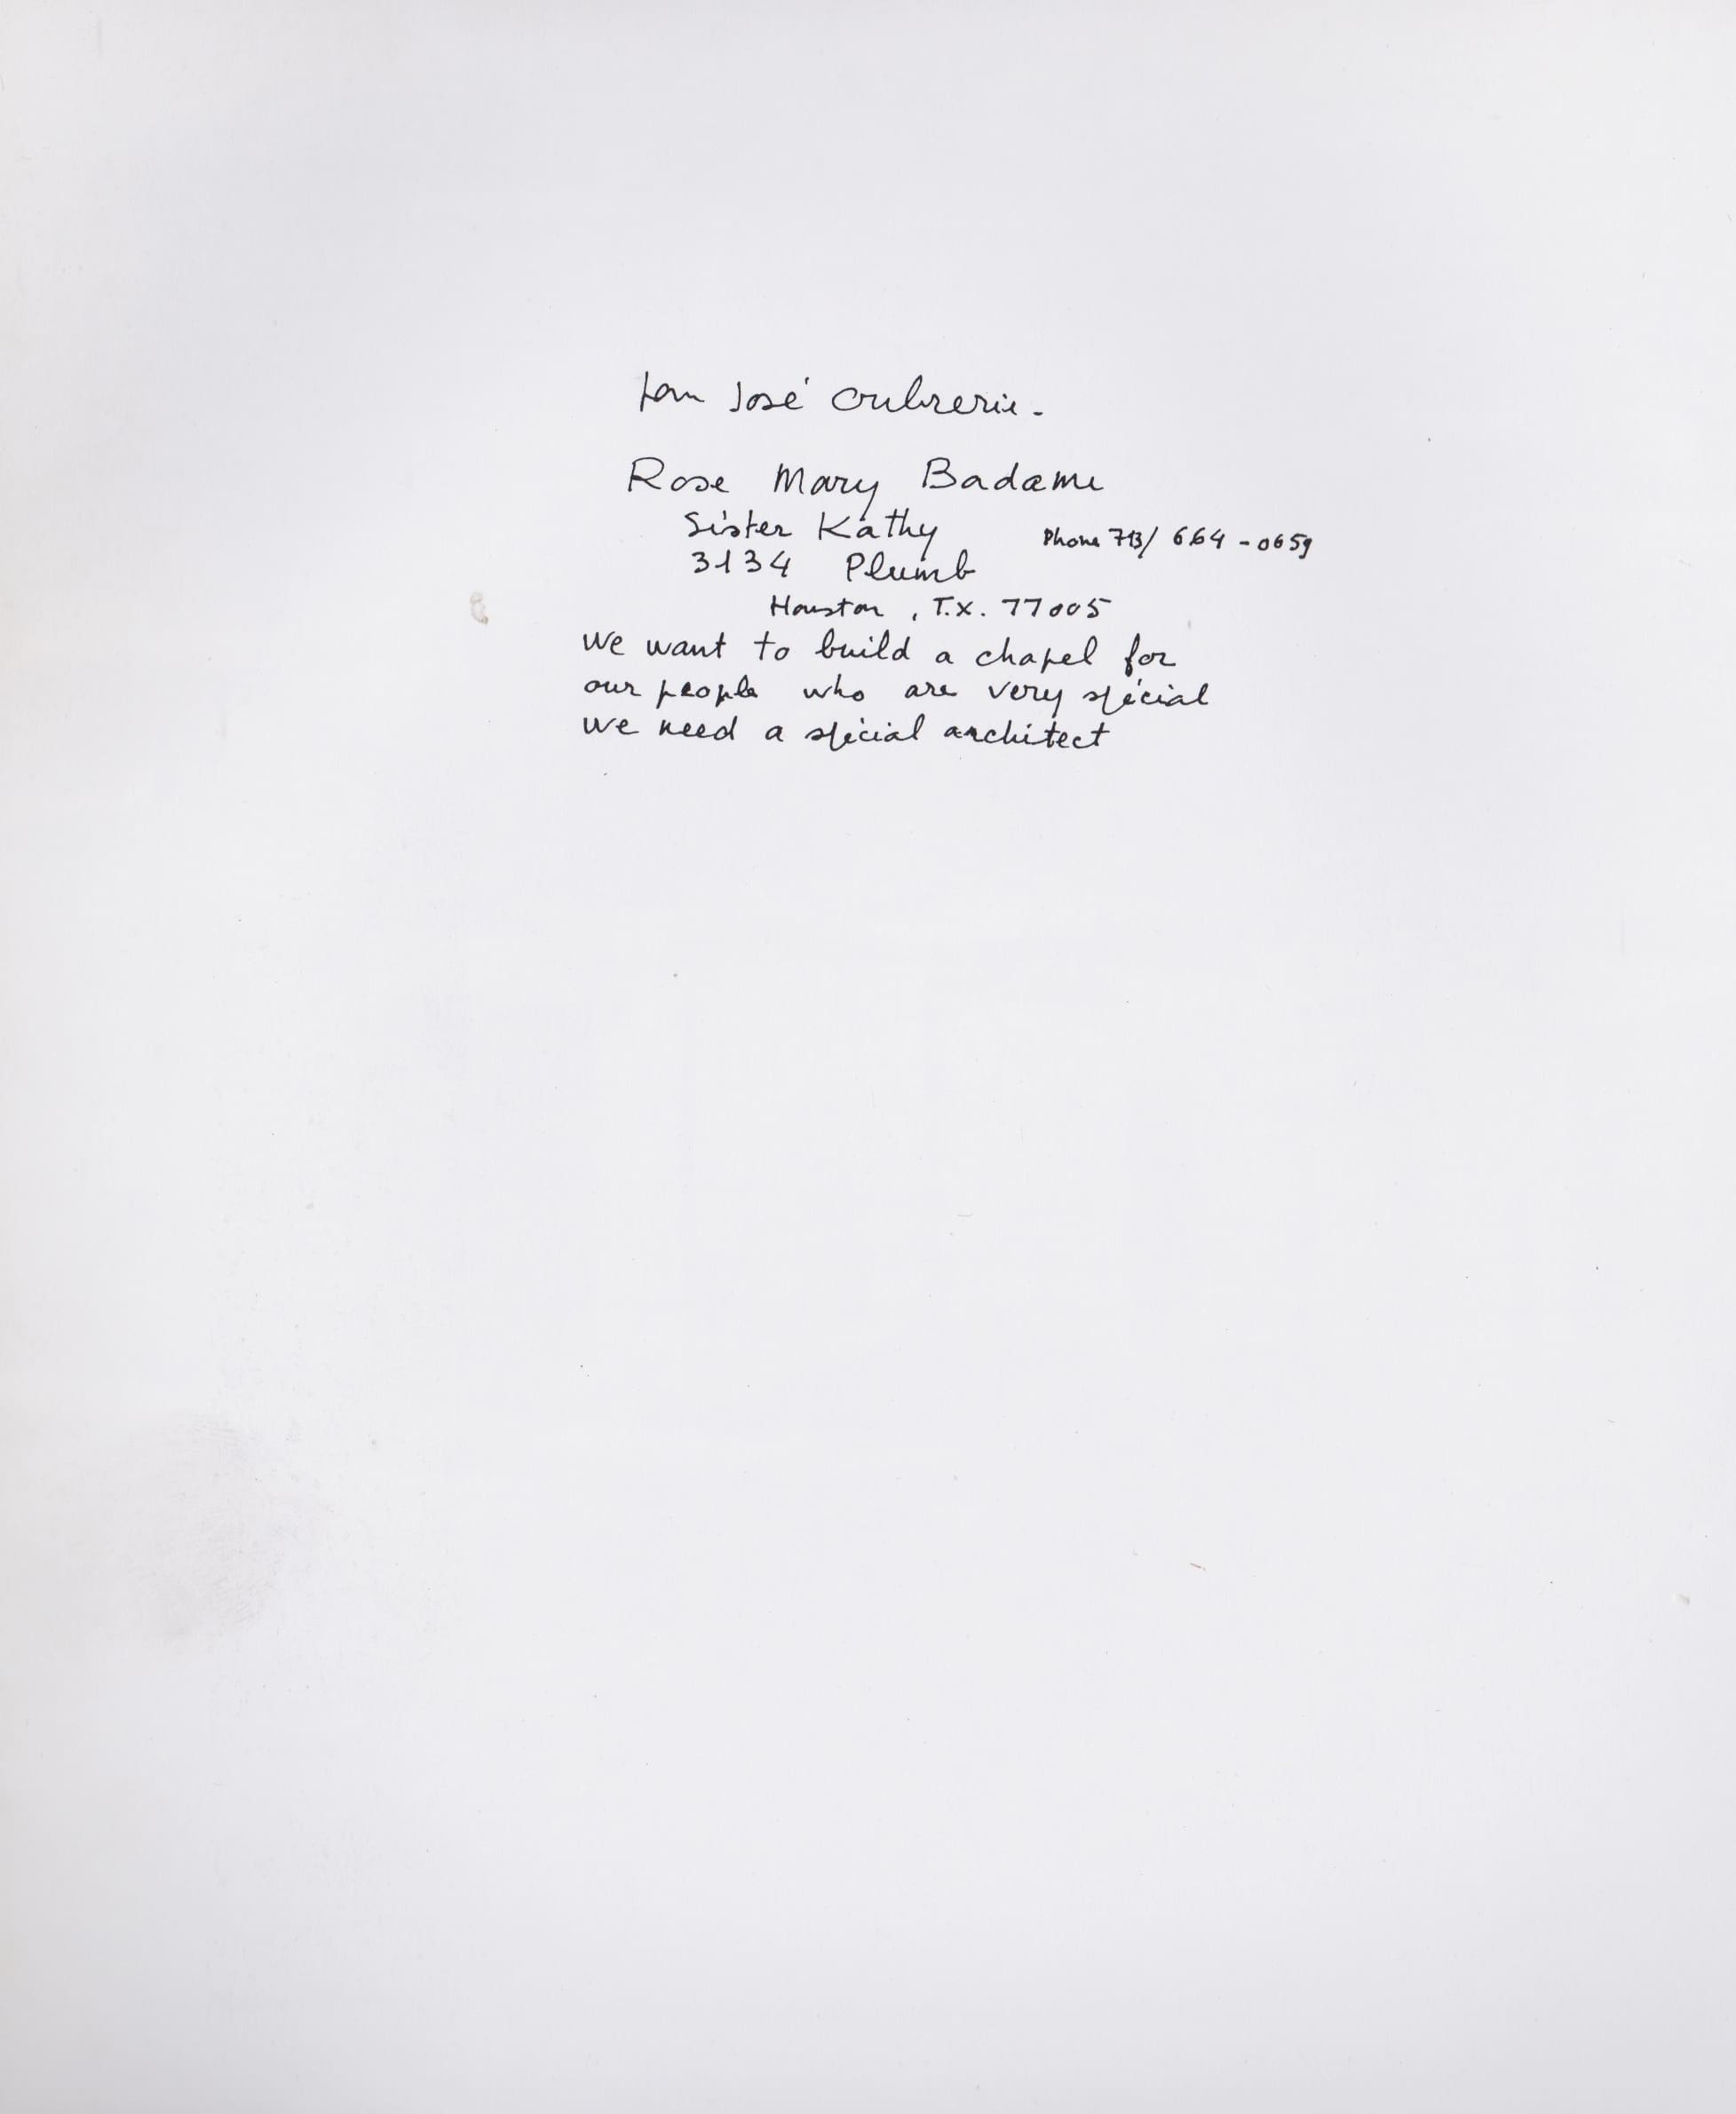 Pour José Oubrerie.
Rose Mary Badame
Sister Kathy Phone 713/ 664-0659
3134 Plumb
Houston, T.X. 77005
We want to build a chapel for
our people who are very spécial
We need a spécial architect